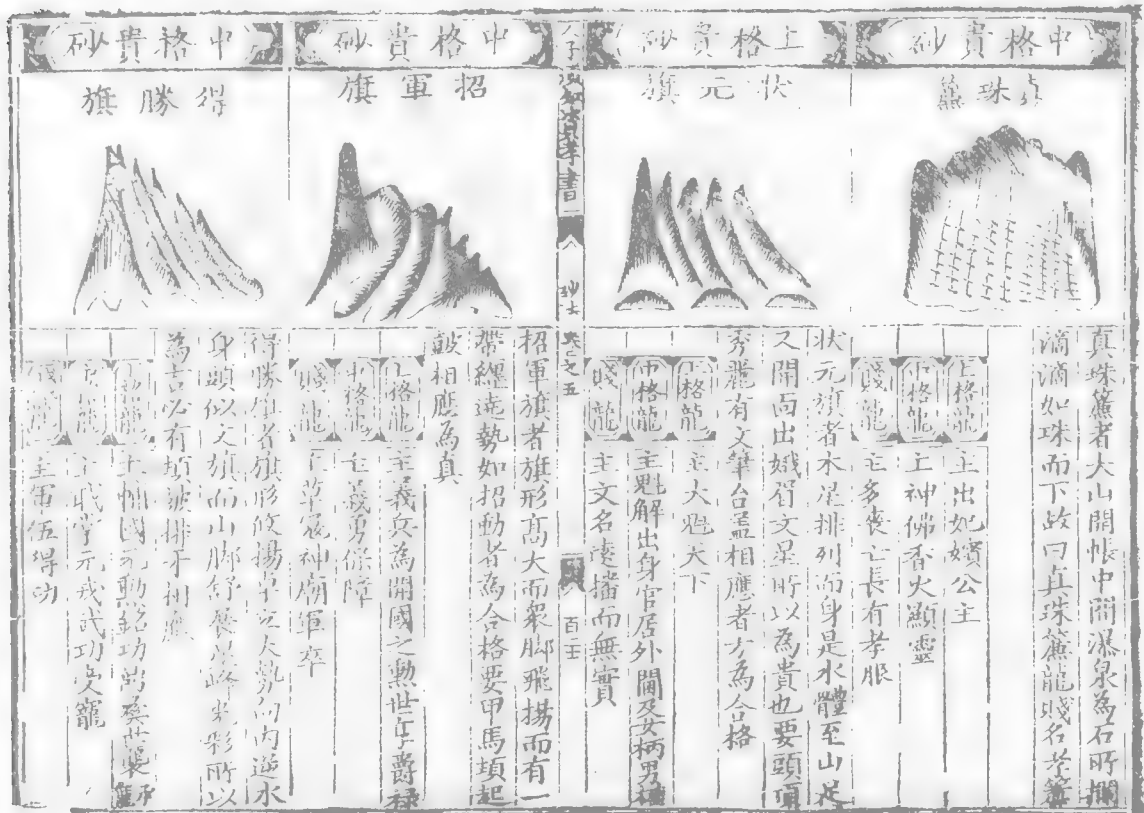 中格貴砂
真珠簾
真珠簾者大山開帳中間瀑泉為石所攔
滴滴如珠而下故曰真珠簾龍賤名孝簾
上格龍
主出妃嬪公主
中格龍
主神佛香火顯靈
賤龍
主多喪亡長有孝服
上格貴砂
狀元旗
狀元旗者木星排列而身是水體至山足
又開面出娥眉文星所以為貴也要頭頂
秀麗有文筆台蓋相應者方為合格
上格龍
主大魁天下
中格龍
主魁解出身官居外閫及女柄男權
賤龍
主文名遠播而無實
人子須知資孝書
砂法
卷之五
中格貴砂
招軍旗
招軍旗者旗形高大而衆脚飛揚而有一
帶纏遶勢如招動者為合格要甲馬頓起
鼓相應為真
上格龍
主義兵為開國之勳世享爵祿
中格龍
主義勇保障
賤龍
主草寇神廟軍卒
中格貴砂
得勝旗
得勝旗者旗形攸揚卓立大勢向內逆水
身頭似文旗而山脚舒展 彩所以
為吉必有 排牙相應
上格龍
中格龍
功受寵
賤龍
主軍伍得功